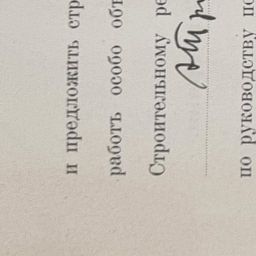 и предложить стр
работъ особо объ
Строительному ре
по руководству по